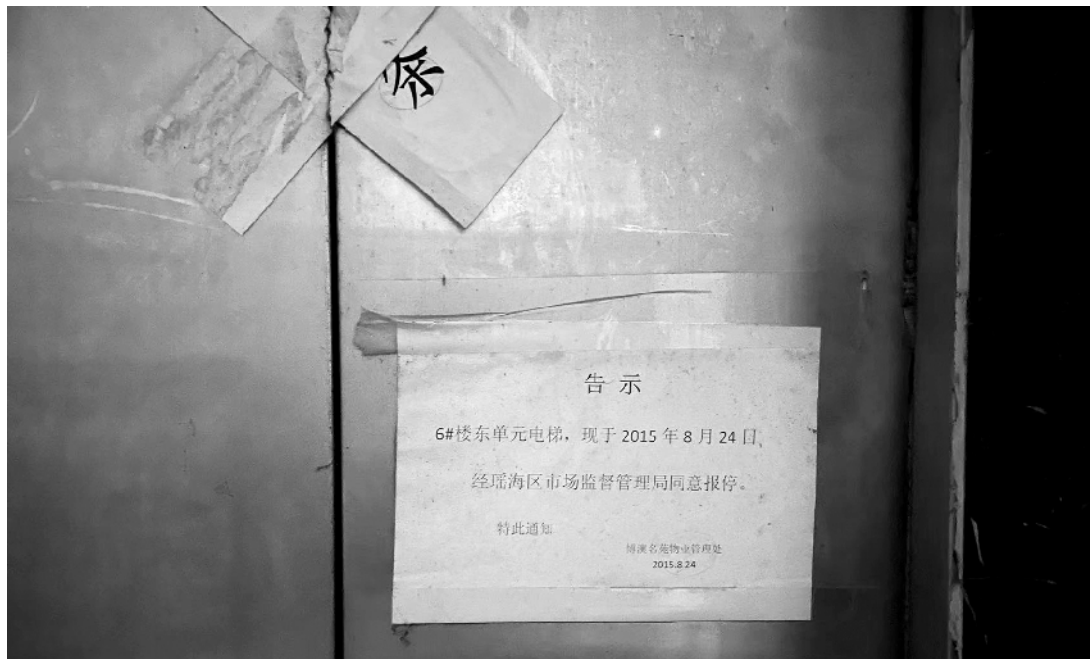 告示
6#楼东单元电梯，现于 2015 年 8 月 24 日，
经瑶海区市场监督管理局同意报停。
特此通知
博澳名苑物业管理处
2015.8.24